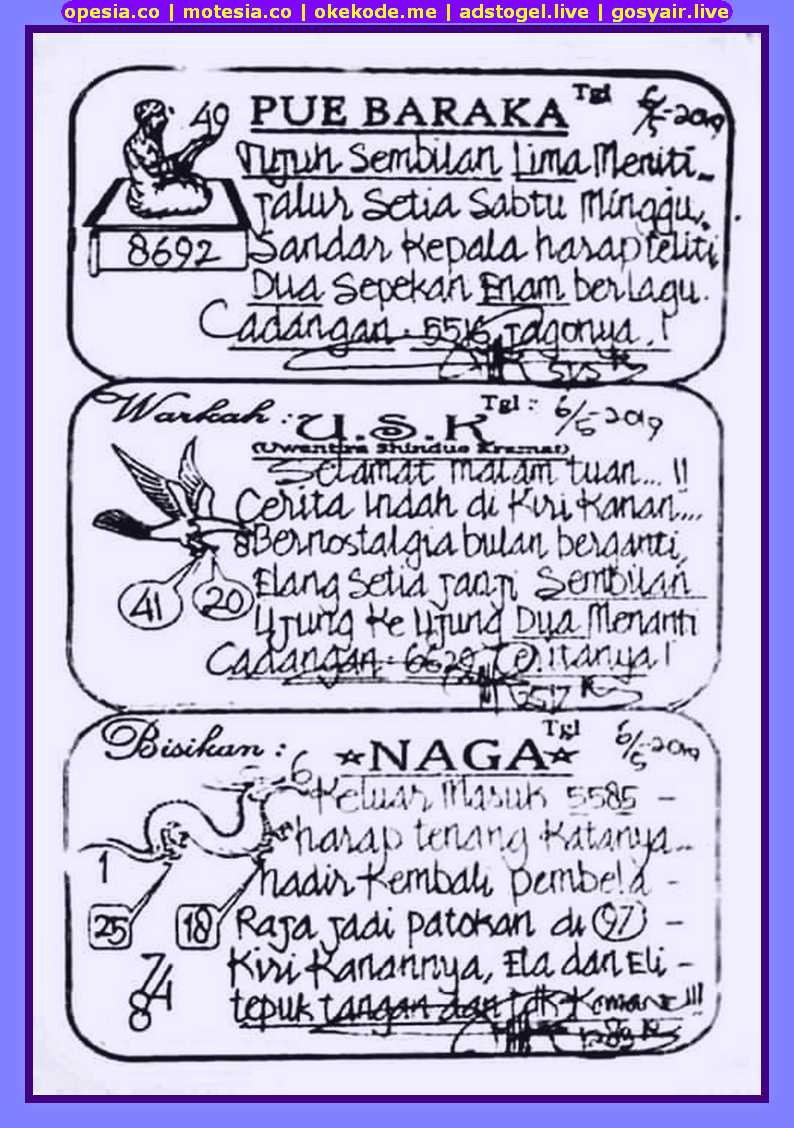 opesia.co | motesia.co | okekode.me | adstogel.live | gosyair.live
PUE BARAKA Tgl 6/5-2019
49
Tujuh Sembilan Lima Meniti
Jalur Setia Sabtu Minggu,
8692
Sandar Kepala harap teliti
Dua Sepekan Enam berlagu.
Cadangan : 5516 Jagonya.!
Warkah : U.S.K Tgl : 6/5-2019
(Uwentira Shindue Kramat)
Selamat malam tuan... !!
Cerita Indah di Kiri Kanan....
8
Bernostalgia bulan berganti,
Elang Setia Janji Sembilan
41 20
Ujung Ke Ujung Dua Menanti
Cadangan : 6629 Ceritanya!
Bisikan : ★NAGA★ Tgl 6/5-2019
6
Keluar Masuk 5585 -
harap tenang Katanya...
1
hadir Kembali pembela -
25 18
Raja jadi patokan di 97 -
Kiri Kanannya, Ela dan Eli -
74
8
tepuk tangan dan !!!